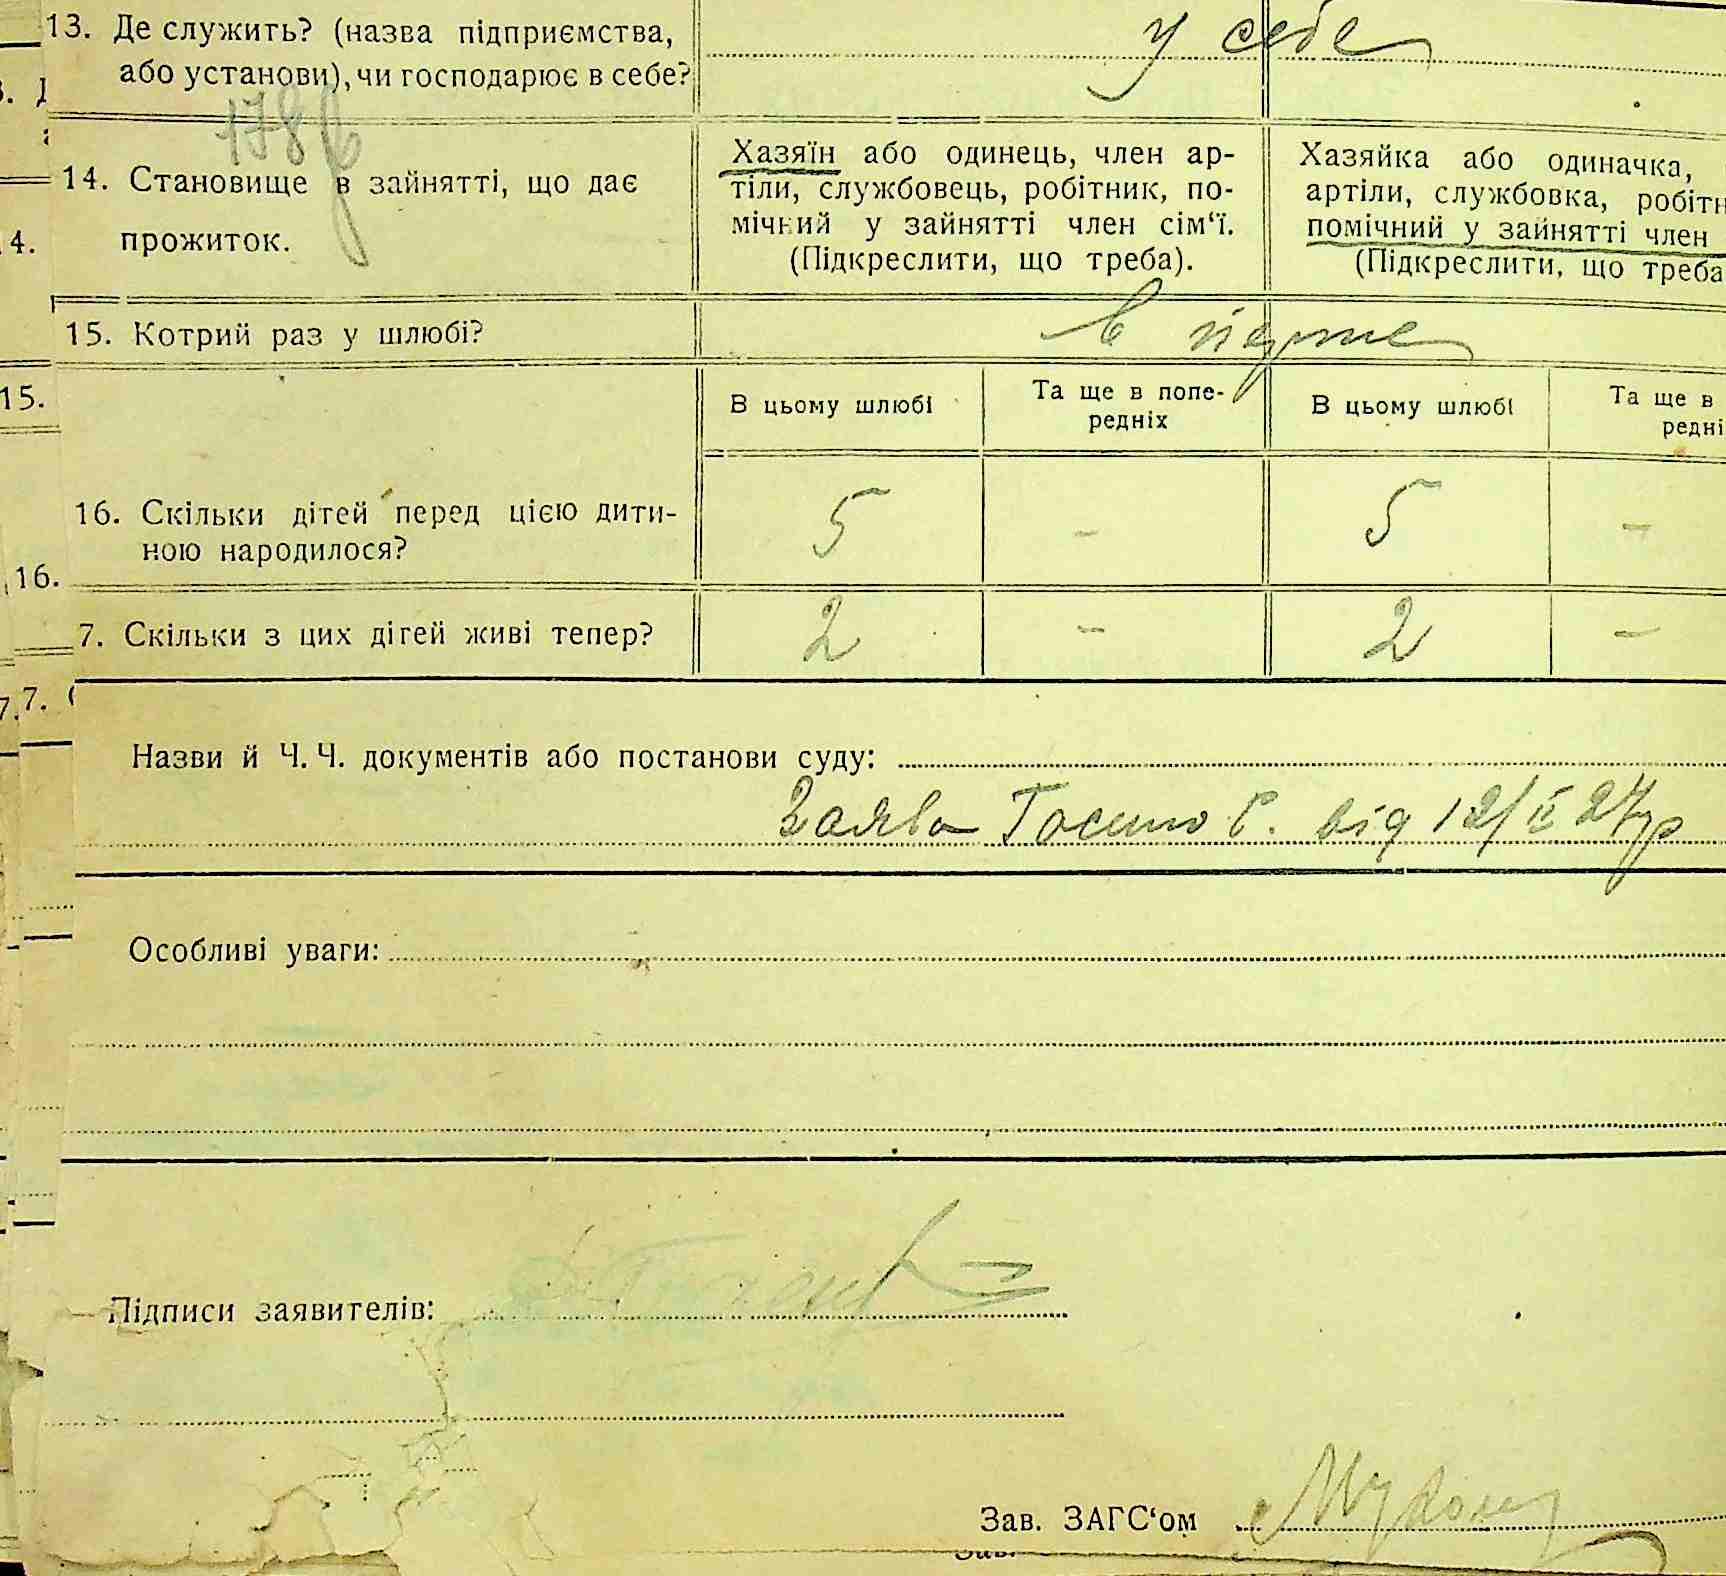 13. Де служить? (назва підприємства,
або установи), чи господарює в себе?
у себе
178
14. Становище в зайнятті, що дає
прожиток.
Хазяїн або одинець, член ар-
тіли, службовець, робітник, по-
мічний у зайнятті член сім'ї.
(Підкреслити, що треба).
Хазяйка або одиначка,
артіли, службовка, робітн
помічний у зайнятті член
(Підкреслити, що треба
15. Котрий раз у шлюбі?
в перше
В цьому шлюбі
Та ще в попе-
редніх
В цьому шлюбі
Та ще в
редні
16. Скільки дітей перед цією дити-
ною народилося?
5 - 5 -
7. Скільки з цих дітей живі тепер?
2 - 2 -
Назви й Ч. Ч. документів або постанови суду:
Заява від 12/ІІ 27 р
Особливі уваги:
Підписи заявителів:
Зав. ЗАГС'ом
3. Д
4.
15.
16.
7. 7.